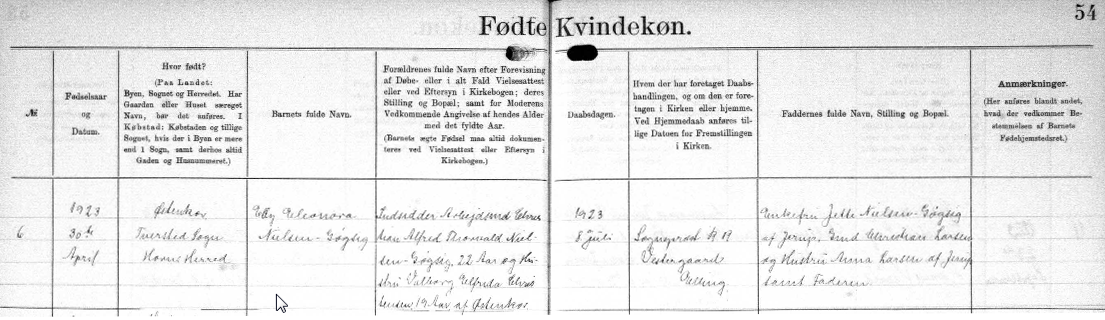 54
Fødte Kvindekøn.
№
Fødselsaar
og
Datum.
Hvor født?
(Paa Landet:
Byen, Sognet og Herredet. Har
Gaarden eller Huset særeget
Navn, bør det anføres. I
Købstad: Købstaden og tillige
Sognet, hvis der i Byen er mere
end 1 Sogn, samt derhos altid
Gaden og Husnummeret.)
Barnets fulde Navn.
Forældrenes fulde Navn efter Forevisning
af Døbe- eller i alt Fald Vielsesattest
eller ved Eftersyn i Kirkebogen; deres
Stilling og Bopæl; samt for Moderens
Vedkommende Angivelse af hendes Alder
med det fyldte Aar.
(Barnets ægte Fødsel maa altid dokumen-
teres ved Vielsesattest eller Eftersyn i
Kirkebogen.)
Daabsdagen.
Hvem der har foretaget Daabs-
handlingen, og om den er fore-
tagen i Kirken eller hjemme.
Ved Hjemmedaab anføres til-
lige Datoen for Fremstillingen
i Kirken.
Faddernes fulde Navn, Stilling og Bopæl.
Anmærkninger.
(Her anføres blandt andet,
hvad der vedkommer Be-
stemmelsen af Barnets
Fødehjemstedsret.)
6
1923
30te
April
Østenkær
Tversted Sogn
Horne Herred
Elly Eleonora
Nielsen-Gøgsig
Indsidder Arbejdsmd Chris
tian Alfred Thorvald Niel-
sen-Gøgsig, 22 Aar og Hu-
stru Valborg Elfrida Chris
tensen, 19 Aar, af Østenkær.
1923
8 Juli
Sognepræst
Vestergaard
Elling.
Enkefru Jette Nielsen-Gøgsig
af Jerup, Gmd Christian Larsen
og Hustru Anna Larsen af Jerup
samt Faderen